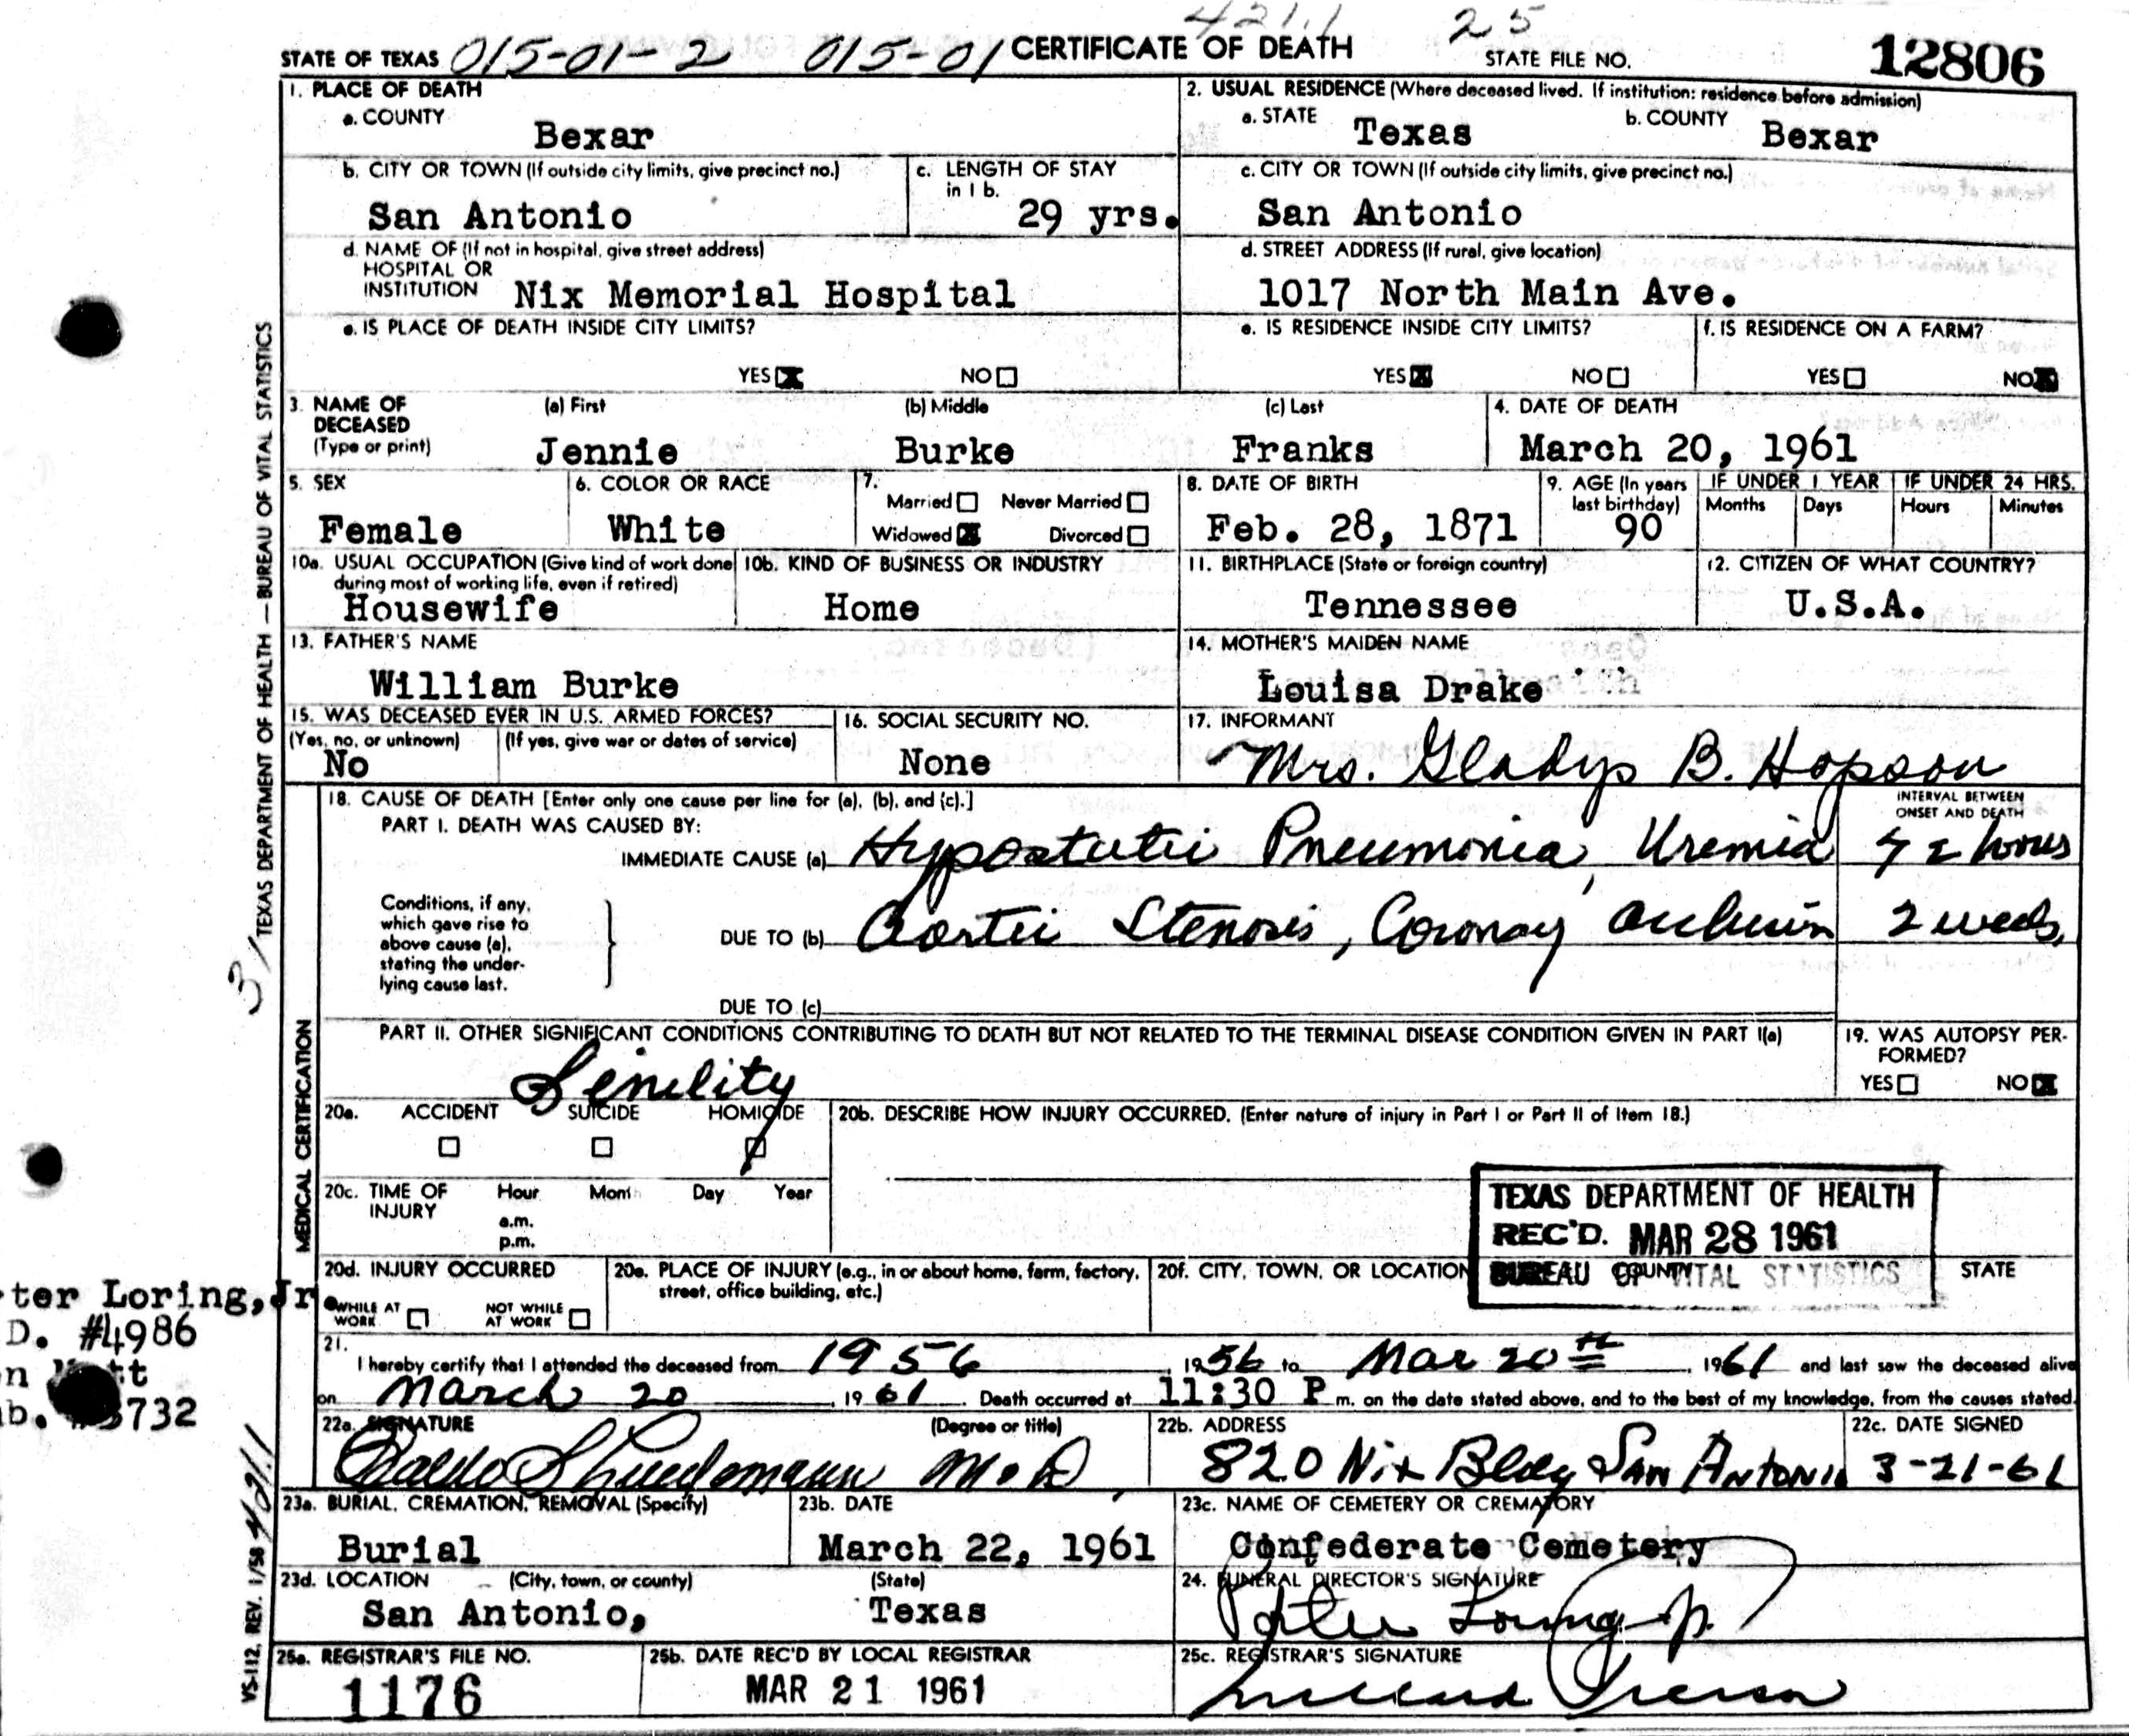 4211 25
STATE OF TEXAS 015-01-2 015-01 CERTIFICATE OF DEATH STATE FILE NO. 12806
1. PLACE OF DEATH
a. COUNTY
Bexar
2. USUAL RESIDENCE (Where deceased lived. If institution: residence before admission)
a. STATE Texas b. COUNTY Bexar
b. CITY OR TOWN (If outside city limits, give precinct no.)
San Antonio
c. LENGTH OF STAY
in 1 b.
29 yrs.
c. CITY OR TOWN (If outside city limits, give precinct no.)
San Antonio
d. NAME OF (If not in hospital, give street address)
HOSPITAL OR
INSTITUTION Nix Memorial Hospital
d. STREET ADDRESS (If rural, give location)
1017 North Main Ave.
e. IS PLACE OF DEATH INSIDE CITY LIMITS?
YES NO
e. IS RESIDENCE INSIDE CITY LIMITS?
YES NO
f. IS RESIDENCE ON A FARM?
YES NO
3. NAME OF
DECEASED
(Type or print)
(a) First (b) Middle (c) Last
Jennie Burke Franks
4. DATE OF DEATH
March 20, 1961
5. SEX
Female
6. COLOR OR RACE
White
7.
Married Never Married
Widowed Divorced
8. DATE OF BIRTH
Feb. 28, 1871
9. AGE (In years
last birthday)
90
IF UNDER 1 YEAR IF UNDER 24 HRS.
Months Days Hours Minutes
10a. USUAL OCCUPATION (Give kind of work done
during most of working life, even if retired)
Housewife
10b. KIND OF BUSINESS OR INDUSTRY
Home
11. BIRTHPLACE (State or foreign country)
Tennessee
12. CITIZEN OF WHAT COUNTRY?
U.S.A.
13. FATHER'S NAME
William Burke
14. MOTHER'S MAIDEN NAME
Louisa Drake
15. WAS DECEASED EVER IN U.S. ARMED FORCES?
(Yes, no, or unknown) (If yes, give war or dates of service)
No
16. SOCIAL SECURITY NO.
None
17. INFORMANT
Mrs. Gladys B. Hopson
18. CAUSE OF DEATH [Enter only one cause per line for (a), (b), and (c).]
INTERVAL BETWEEN
ONSET AND DEATH
PART I. DEATH WAS CAUSED BY:
IMMEDIATE CAUSE (a) Hypostatic Pneumonia, Uremia 72 hours
Conditions, if any,
which gave rise to
above cause (a),
stating the under-
lying cause last.
DUE TO (b) Aortic Stenosis, Coronary occlusion 2 weeks
DUE TO (c)
PART II. OTHER SIGNIFICANT CONDITIONS CONTRIBUTING TO DEATH BUT NOT RELATED TO THE TERMINAL DISEASE CONDITION GIVEN IN PART I(a)
Senility
19. WAS AUTOPSY PER-
FORMED?
YES NO
20a. ACCIDENT SUICIDE HOMICIDE
20b. DESCRIBE HOW INJURY OCCURRED. (Enter nature of injury in Part I or Part II of Item 18.)
20c. TIME OF
INJURY
Hour Month Day Year
a.m.
p.m.
TEXAS DEPARTMENT OF HEALTH
REC'D. MAR 28 1961
BUREAU OF VITAL STATISTICS
20d. INJURY OCCURRED
WHILE AT
WORK
NOT WHILE
AT WORK
20e. PLACE OF INJURY (e.g., in or about home, farm, factory,
street, office building, etc.)
20f. CITY, TOWN, OR LOCATION COUNTY STATE
ter Loring, Jr
D. #4986
b. 3732
21.
I hereby certify that I attended the deceased from 1956, 1956 to Mar 20th, 1961 and last saw the deceased alive
on March 20, 1961. Death occurred at 11:30 P m. on the date stated above, and to the best of my knowledge, from the causes stated.
22a. SIGNATURE (Degree or title)
M.D.
22b. ADDRESS
820 Nix Bldg San Antonio
22c. DATE SIGNED
3-21-61
23a. BURIAL, CREMATION, REMOVAL (Specify)
Burial
23b. DATE
March 22, 1961
23c. NAME OF CEMETERY OR CREMATORY
Confederate Cemetery
23d. LOCATION (City, town, or county) (State)
San Antonio, Texas
24. FUNERAL DIRECTOR'S SIGNATURE
Porter Loring Jr.
25a. REGISTRAR'S FILE NO.
1176
25b. DATE REC'D BY LOCAL REGISTRAR
MAR 21 1961
25c. REGISTRAR'S SIGNATURE
TEXAS DEPARTMENT OF HEALTH — BUREAU OF VITAL STATISTICS
31
MEDICAL CERTIFICATION
VS-112, REV. 1/58 4211